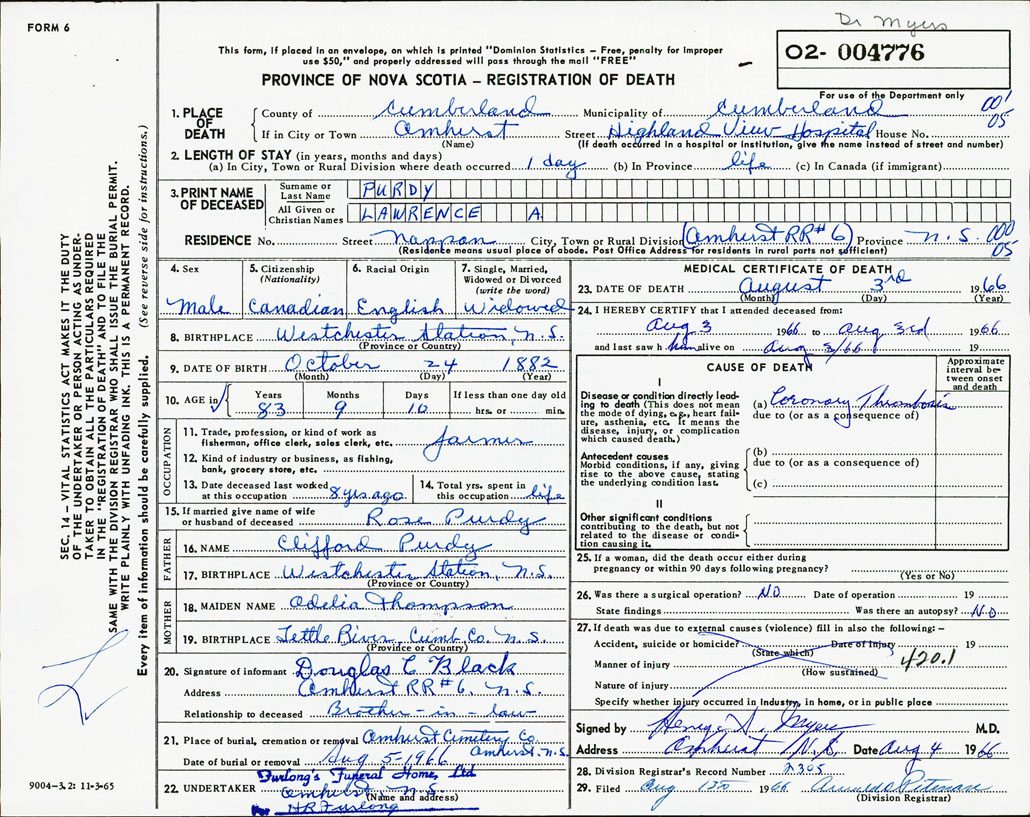 Dr Myers
FORM 6
This form, if placed in an envelope, on which is printed "Dominion Statistics – Free, penalty for improper
use $50," and properly addressed will pass through the mail "FREE"
02- 004776
PROVINCE OF NOVA SCOTIA – REGISTRATION OF DEATH
For use of the Department only
1. PLACE OF DEATH
County of Cumberland Municipality of Cumberland 001
If in City or Town Amherst Street Highland View Hospital House No. 05
(Name) (If death occurred in a hospital or institution, give the name instead of street and number)
2. LENGTH OF STAY (in years, months and days)
(a) In City, Town or Rural Division where death occurred 1 day (b) In Province life (c) In Canada (if immigrant)
3. PRINT NAME OF DECEASED
Surname or Last Name PURDY
All Given or Christian Names LAWRENCE A
RESIDENCE No. Street Nappan City, Town or Rural Division (Amherst RR#6) Province N.S. 000
(Residence means usual place of abode. Post Office Address for residents in rural parts not sufficient) 05
4. Sex
Male
5. Citizenship
(Nationality)
Canadian
6. Racial Origin
English
7. Single, Married,
Widowed or Divorced
(write the word)
Widowed
8. BIRTHPLACE Westchester Station, N.S.
(Province or Country)
9. DATE OF BIRTH October 24 1882
(Month) (Day) (Year)
10. AGE in
Years Months Days If less than one day old
83 9 10 hrs. or min.
OCCUPATION
11. Trade, profession, or kind of work as
fisherman, office clerk, sales clerk, etc. farmer
12. Kind of industry or business, as fishing,
bank, grocery store, etc.
13. Date deceased last worked
at this occupation 8 yrs ago
14. Total yrs. spent in
this occupation life
15. If married give name of wife
or husband of deceased Rose Purdy
FATHER
16. NAME Clifford Purdy
17. BIRTHPLACE Westchester Station, N.S.
(Province or Country)
MOTHER
18. MAIDEN NAME Odelia Thompson
19. BIRTHPLACE Little River, Cumb. Co. N.S.
(Province or Country)
20. Signature of informant Douglas C Black
Address Amherst RR#6, N.S.
Relationship to deceased Brother-in-law
21. Place of burial, cremation or removal Amherst Cemetery Co.
Amherst, N.S.
Date of burial or removal Aug 5-1966
22. UNDERTAKER Furlong's Funeral Home, Ltd
Amherst, N.S.
(Name and address)
Per H.R. Furlong
MEDICAL CERTIFICATE OF DEATH
23. DATE OF DEATH August 3rd 1966
(Month) (Day) (Year)
24. I HEREBY CERTIFY that I attended deceased from:
Aug 3 1966 to Aug 3rd 1966
and last saw him alive on Aug 3/66 19
CAUSE OF DEATH
Approximate
interval be-
tween onset
and death
I
Disease or condition directly lead-
ing to death (This does not mean
the mode of dying, e.g., heart fail-
ure, asthenia, etc. It means the
disease, injury, or complication
which caused death.)
(a) Coronary Thrombosis
due to (or as a consequence of)
Antecedent causes
Morbid conditions, if any, giving
rise to the above cause, stating
the underlying condition last.
(b)
due to (or as a consequence of)
(c)
II
Other significant conditions
contributing to the death, but not
related to the disease or condi-
tion causing it.
25. If a woman, did the death occur either during
pregnancy or within 90 days following pregnancy?
(Yes or No)
26. Was there a surgical operation? No Date of operation 19
State findings Was there an autopsy? No
27. If death was due to external causes (violence) fill in also the following:–
Accident, suicide or homicide? Date of injury 19
(State which)
Manner of injury 420.1
(How sustained)
Nature of injury
Specify whether injury occurred in industry, in home, or in public place
Signed by M.D.
Address Amherst N.S. Date Aug 4 1966
28. Division Registrar's Record Number 2305
29. Filed Aug 1966
(Division Registrar)
SEC. 14 – VITAL STATISTICS ACT MAKES IT THE DUTY
OF THE UNDERTAKER OR PERSON ACTING AS UNDER-
TAKER TO OBTAIN ALL THE PARTICULARS REQUIRED
IN THE "REGISTRATION OF DEATH" AND TO FILE THE
SAME WITH THE DIVISION REGISTRAR WHO SHALL ISSUE THE BURIAL PERMIT.
WRITE PLAINLY WITH UNFADING INK. THIS IS A PERMANENT RECORD.
Every item of information should be carefully supplied. (See reverse side for instructions.)
9004–3.2: 11-3-65